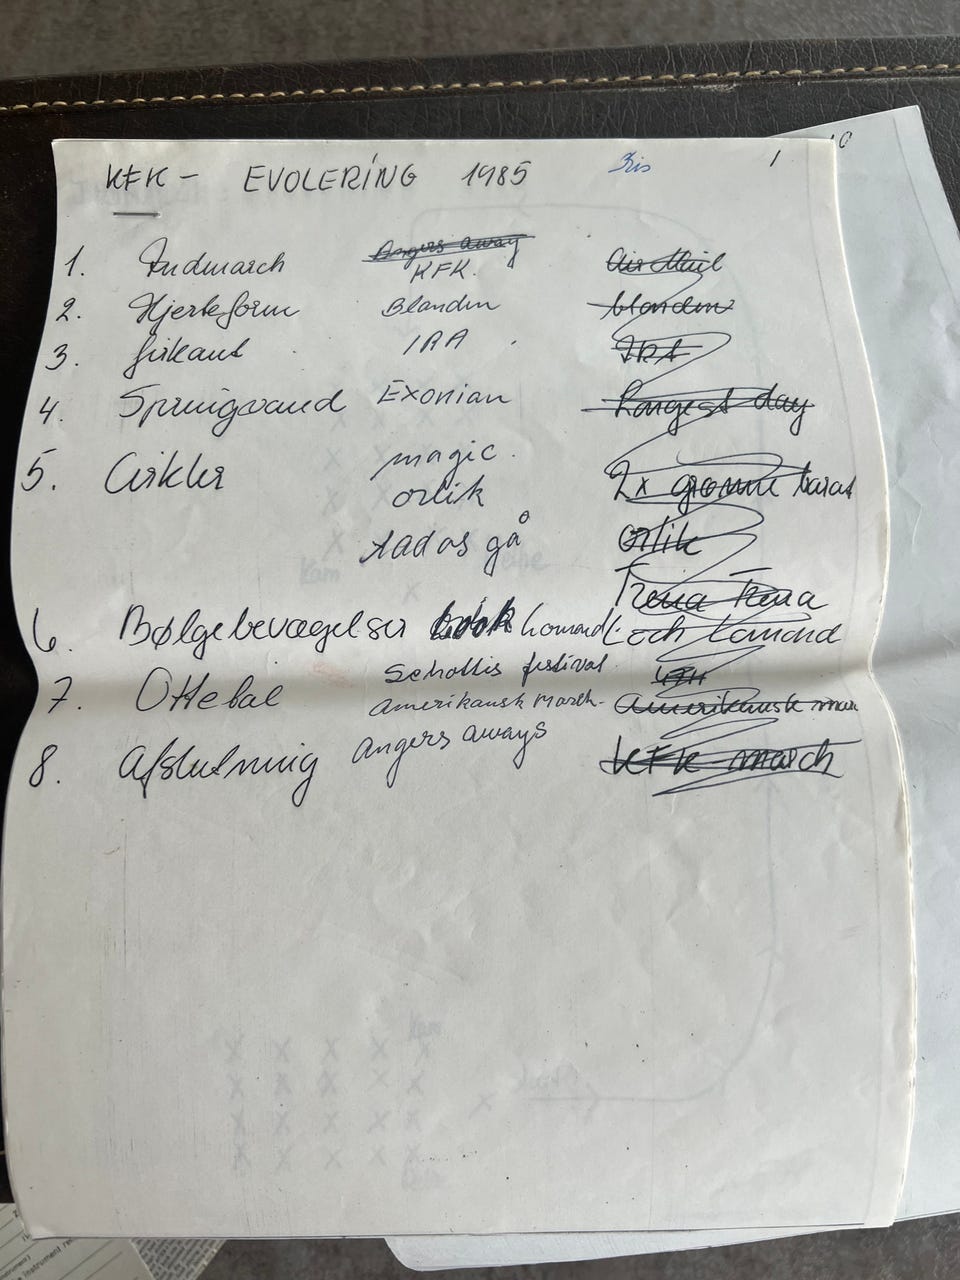 KFK - EVOLERING 1985 Iris 1
1. Indmarch Angers away Air Mail
KFK.
2. Hjerteform Blanden blanden
3. firkant IRA IRA
4. Springvand Exonian Longest day
5. Cirkler magic. 2x grønne barat
orlik orlik
tados gå Treua Treua
6. Bølgebevægelser look Lomond Loch Lomond
7. Ottetal Schottis festival.
Amerikansk March Amerikansk mar
8. Afslutning angers aways KFK march